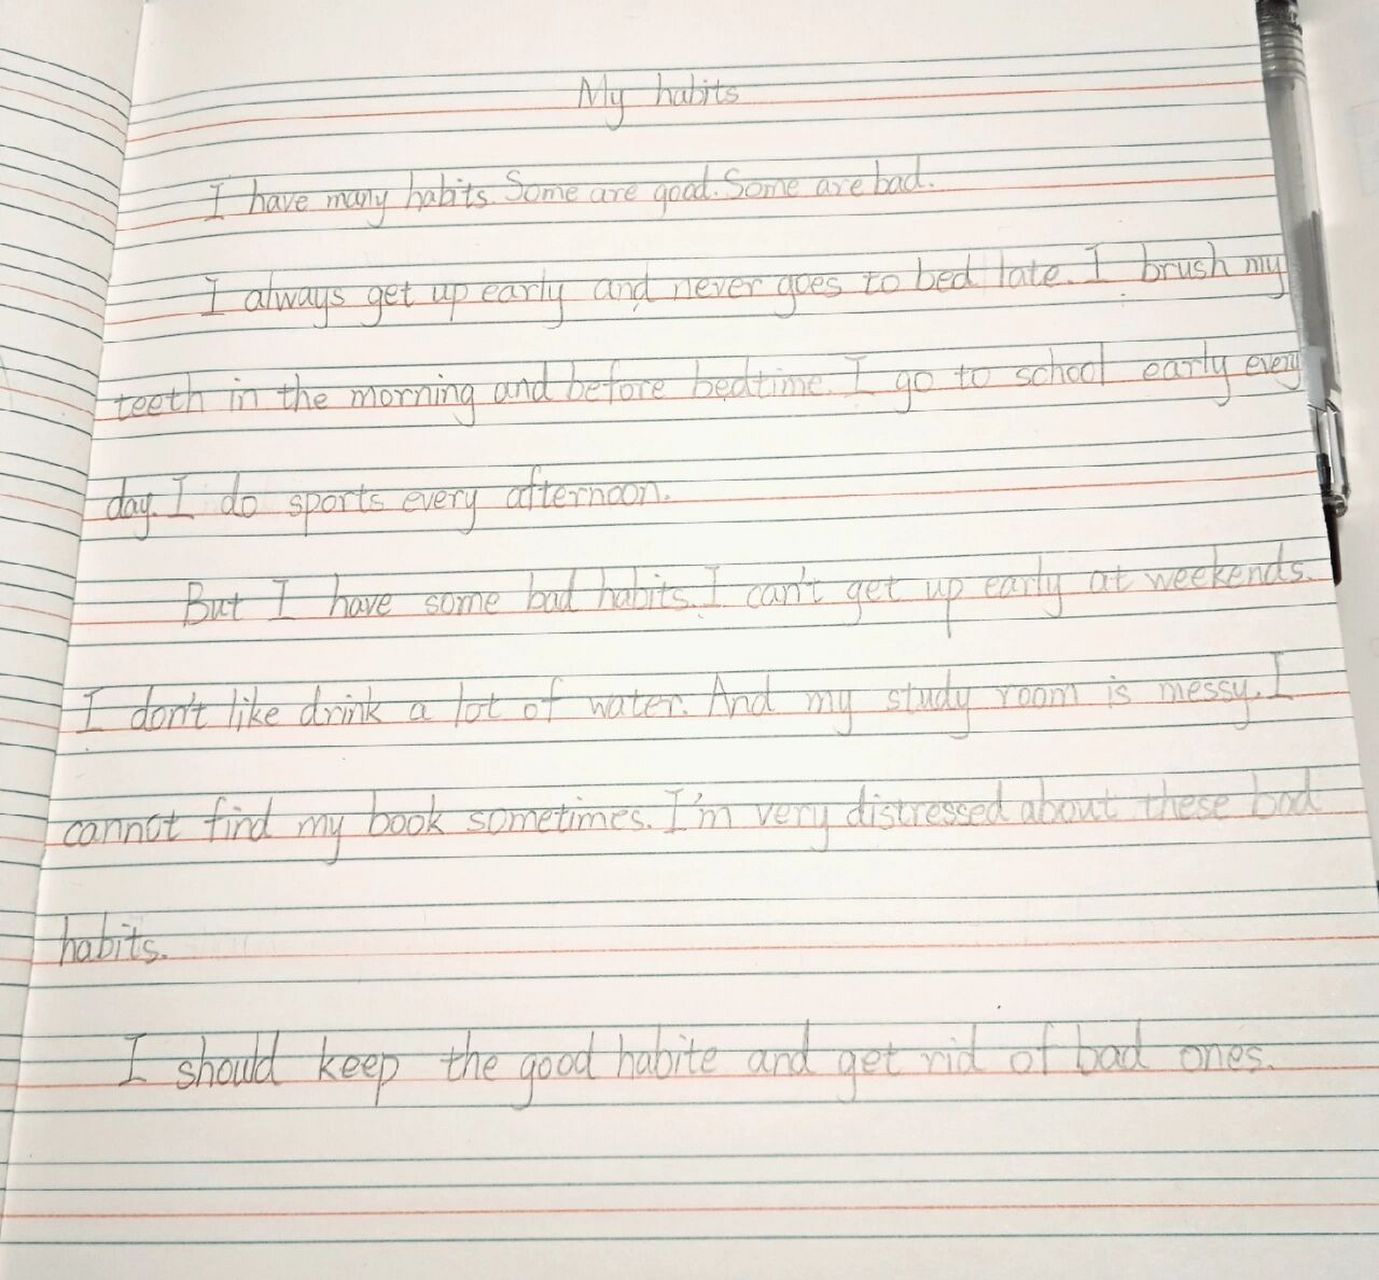 My habits
I have many habits. Some are good. Some are bad.
I always get up early and never goes to bed late. I brush my
teeth in the morning and before bedtime. I go to school early every
day. I do sports every afternoon.
But I have some bad habits. I can't get up early at weekends.
I don't like drink a lot of water. And my study room is messy. I
cannot find my book sometimes. I'm very distressed about these bad
habits.
I should keep the good habite and get rid of bad ones.